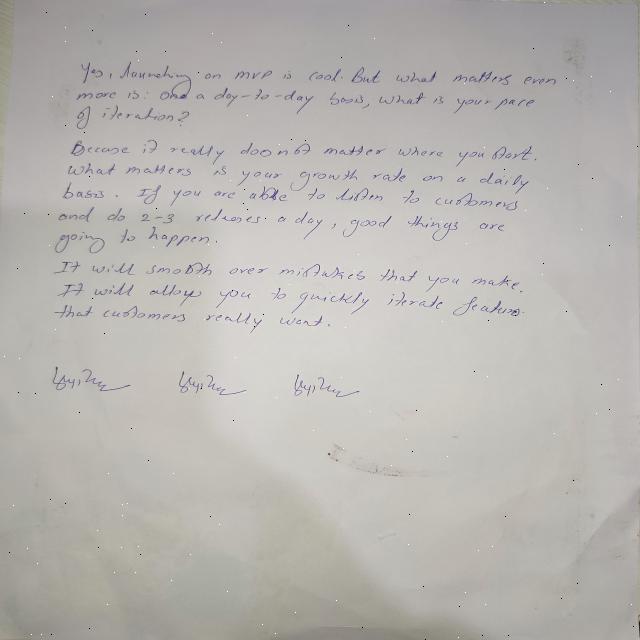 Yes, launching on mvp is cool. But what matters even
more is: on a day-to-day basis, what is your pace
of iteration?
Becuse it really doesnot matter where you start.
What matters is your growth rate on a daily
basis. If you are able to listen to customers
and do 2-3 releases a day, good things are
going to happen.
It will smooth over mistakes that you make.
It will allow you to quickly iterate feature
that customers really want.